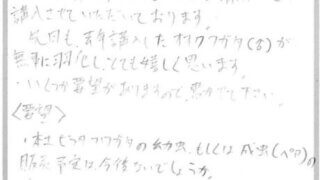 購入させていただいております。
先日も、幸運にも購入したオオクワガタ(♂)が
無事に羽化し、とても嬉しく思います。
・いくつか要望がありますので、書かせて下さい。
〈要望〉
・本土ヒラタクワガタの幼虫、もしくは成虫(ペア)の
販売予定は今後ないでしょうか。